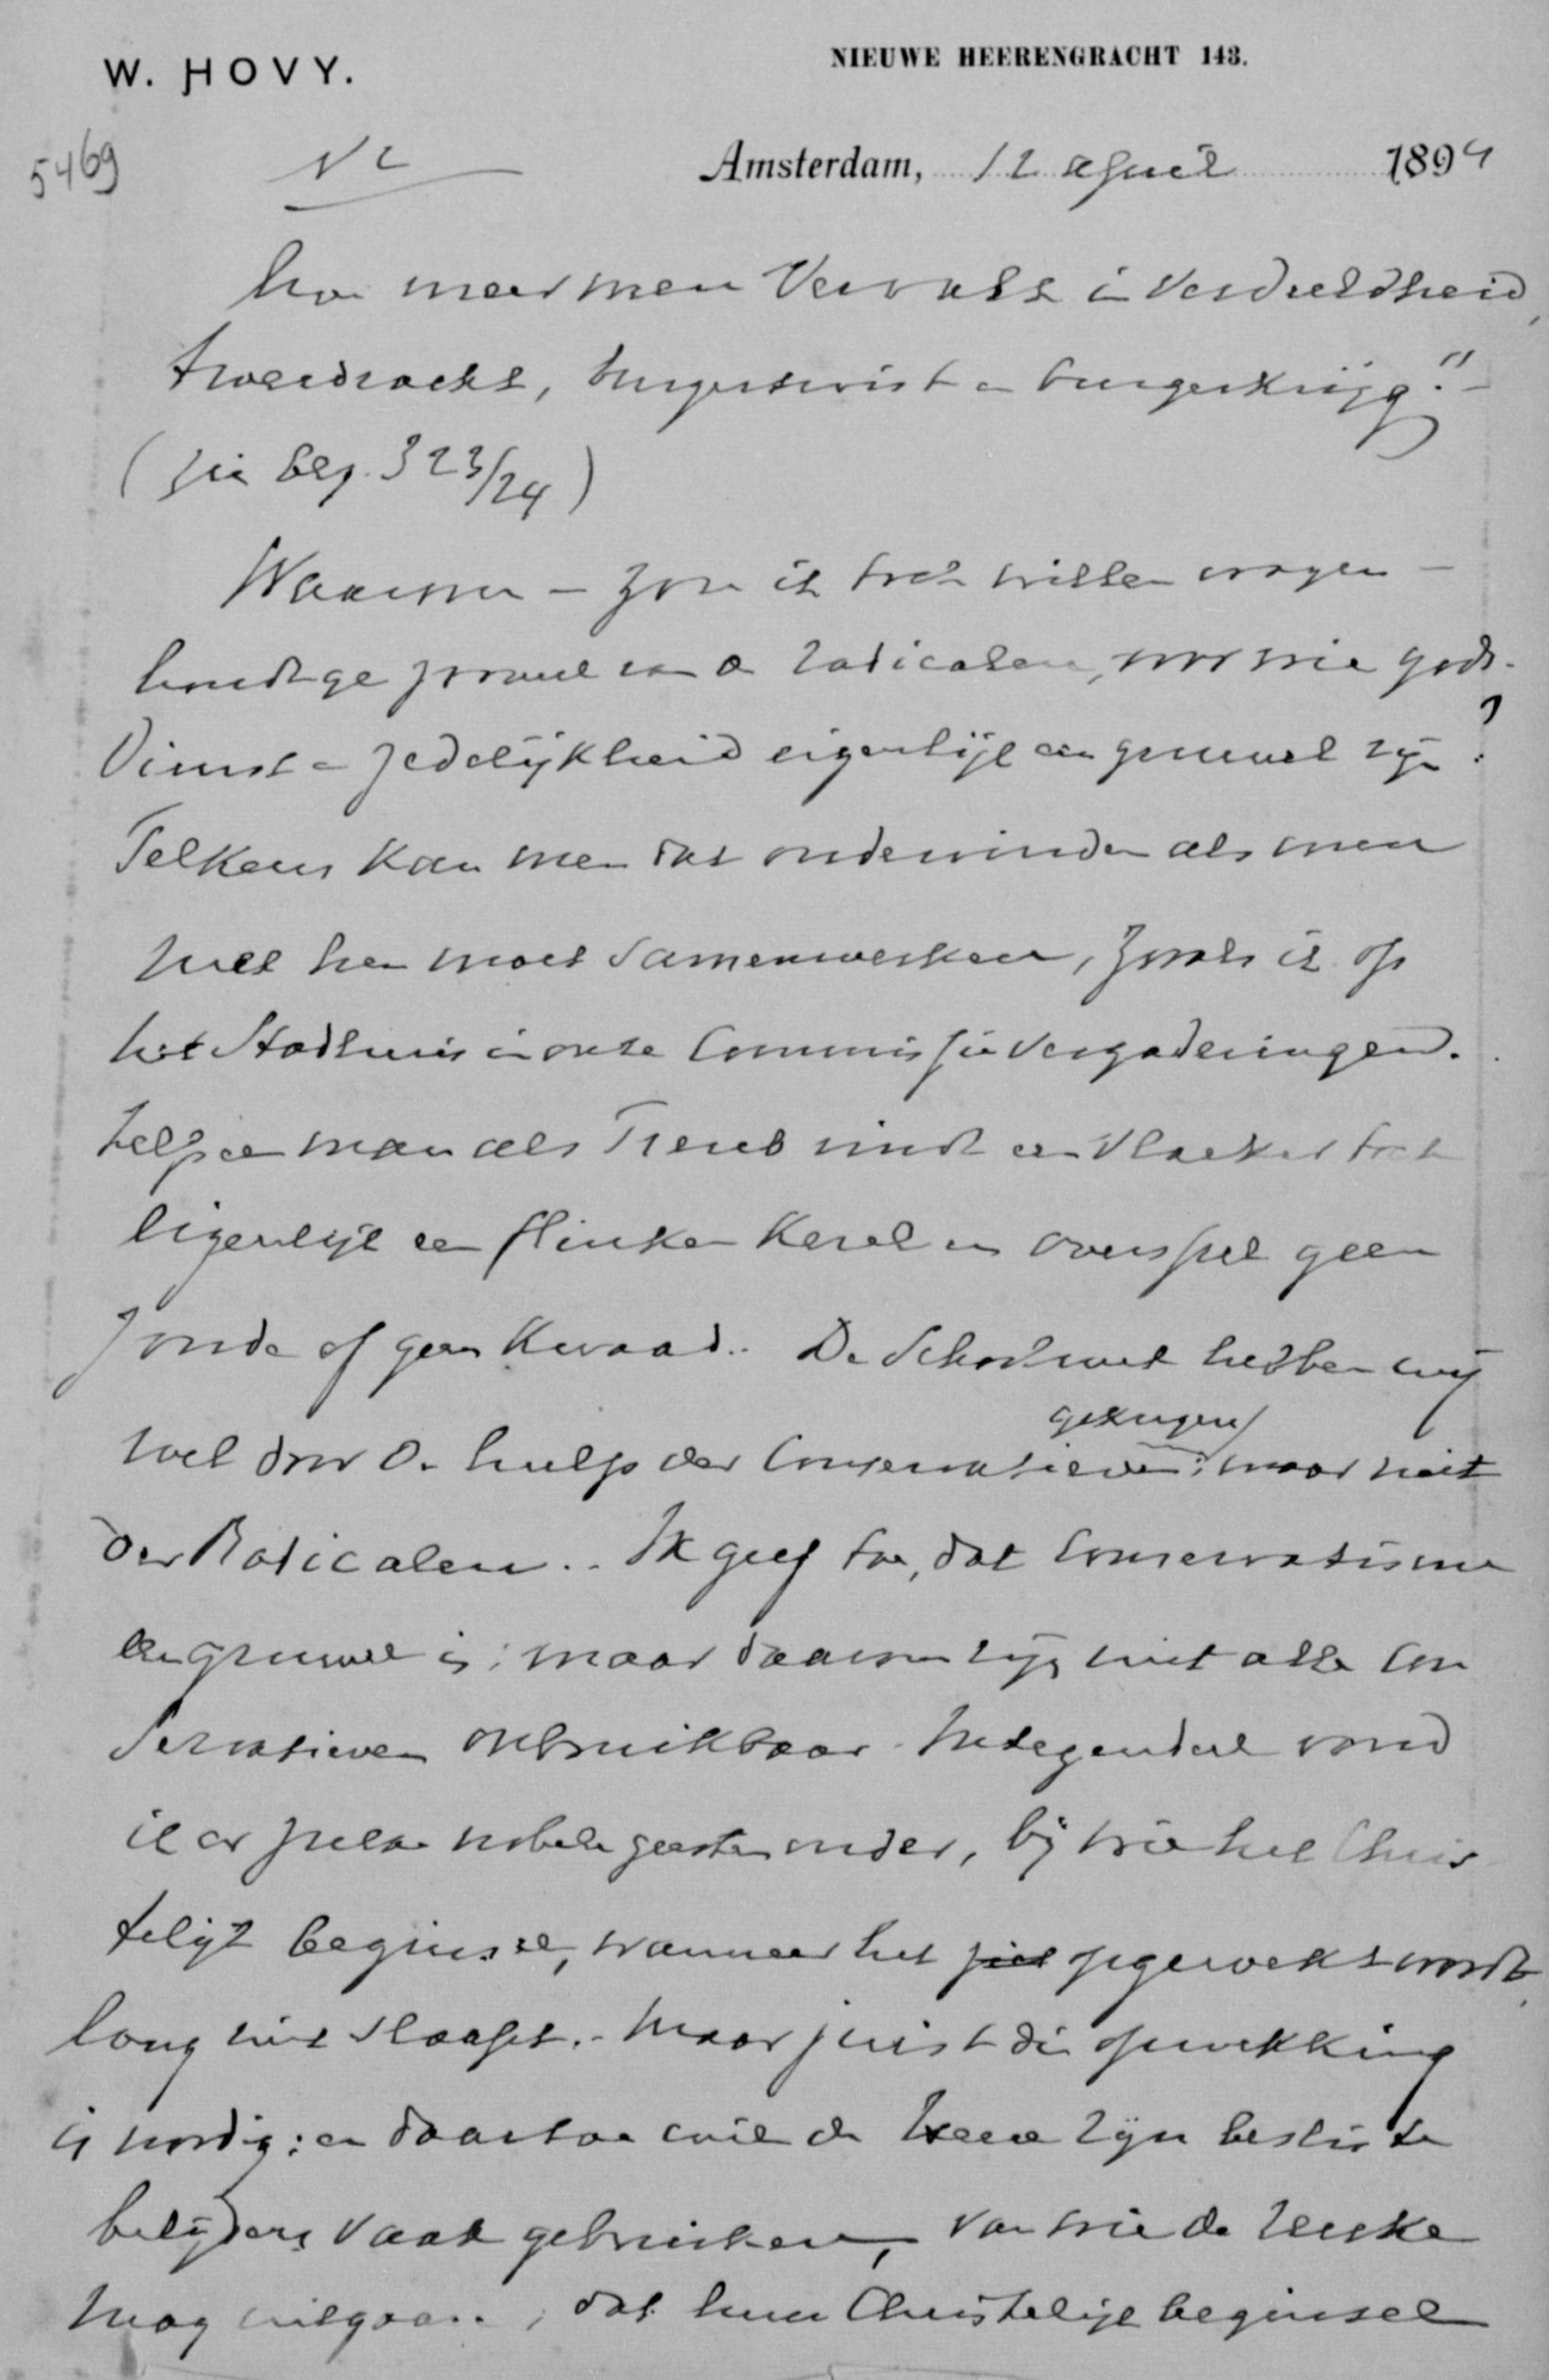 W. HOVY.
NIEUWE HEERENGRACHT 143.
5469
Amsterdam, 12 april 1894
hoe meer men vervalt in verdeeldheid,
tweedracht, burgertwist en burgerkrijg."-
(zie blz. 323/24)
Waarom - zou ik toch willen vragen -
hondt ge zooveel van de radicalen, voor wie gods-
dienst en zedelijkheid eigenlijk een gruwel zijn?
Telkens kan men dat ondervinden als men
met hen moet samenwerken, zooals ik op
het Stadhuis in onze Commissievergaderingen.
Zelfs een man als Treub vindt een vloeker toch
eigenlijk een flinken kerel en overspel geen
zonde of geen kwaad. De Schoolwet hebben wij
gekregen
wel door de hulp der Conservatieven; maar niet
der Radicalen.. Ik geef toe, dat conservatisme
een gruwel is; maar daarom zijn niet alle con
servatieven onbruikbaar. Integendeel vond
ik er zelfs nobele geesten onder, bij wie het Chris
telijk beginsel, wanneer het opgewekt wordt,
lang niet slaapt.- Maar juist die opwekking
is noodig; en daartoe wil de Heere zijn besliste
belijders vaak gebruiken, van wie de reuke
mag uitgaan, dat hun Christelijk beginsel